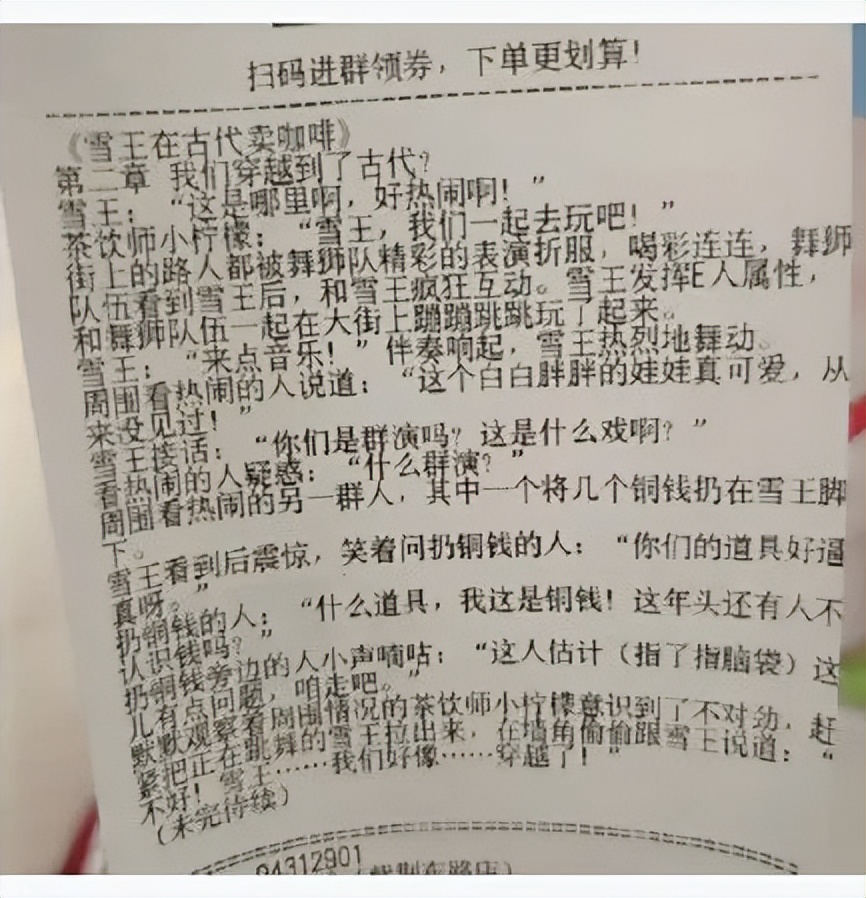 扫码进群领券，下单更划算！
《雪王在古代卖咖啡》
第二章 我们穿越到了古代？
雪王：“这是哪里啊，好热闹啊！”
茶饮师小柠檬：“雪王，我们一起去玩吧！”
街上的路人都被舞狮队精彩的表演折服，喝彩连连，舞狮
队伍看到雪王后，和雪王疯狂互动。雪王发挥E人属性，
和舞狮队伍一起在大街上蹦蹦跳跳玩了起来。
雪王：“来点音乐！”伴奏响起，雪王热烈地舞动。
周围看热闹的人说道：“这个白白胖胖的娃娃真可爱，从
来没见过！”
雪王接话：“你们是群演吗？这是什么戏啊？”
看热闹的人疑惑：“什么群演？”
周围看热闹的另一群人，其中一个将几个铜钱扔在雪王脚
下。
雪王看到后震惊，笑着问扔铜钱的人：“你们的道具好逼
真呀。”
扔铜钱的人：“什么道具，我这是铜钱！这年头还有人不
认识钱吗？”
扔铜钱旁边的人小声嘀咕：“这人估计（指了指脑袋）这
儿有点问题，咱走吧。”
默默观察着周围情况的茶饮师小柠檬意识到了不对劲，赶
紧把正在跳舞的雪王拉出来，在墙角偷偷跟雪王说道：“
不好！雪王……我们好像……穿越了！”
（未完待续）
94312901
东路店）